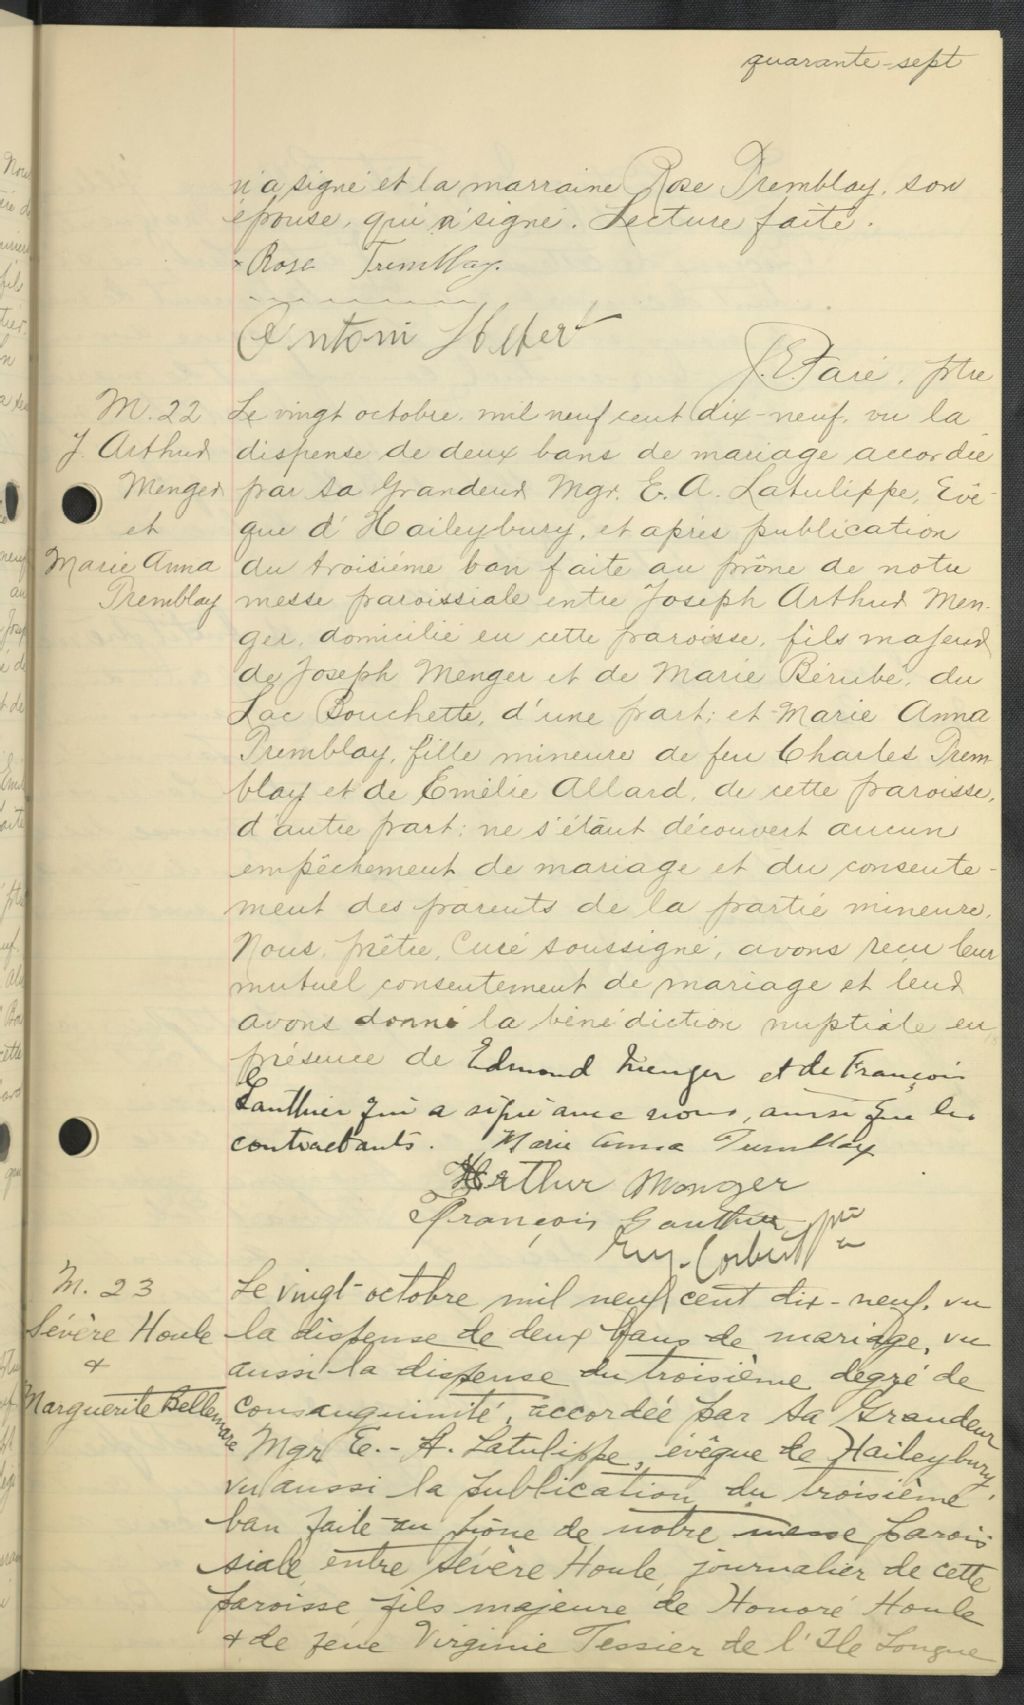 quarante-sept
n'a signé et la marraine Rose Tremblay, son
épouse, qui a signé. Lecture faite.
Rose Tremblay.
Antoni Heber
J. E. Paré, ptre
M. 22
J. Arthur
Menger
et
Marie Anna
Tremblay
Le vingt octobre, mil neuf cent dix-neuf, vu la
dispense de deux bans de mariage accordée
par Sa Grandeur Mgr. E. A. Latulippe, Evê-
que d'Haileybury, et après publication
du troisième ban faite au prône de notre
messe paroissiale entre Joseph Arthur Men-
ger, domicilié en cette paroisse, fils majeur
de Joseph Menger et de Marie Bérubé, du
Lac Bouchette, d'une part; et Marie Anna
Tremblay, fille mineure de feu Charles Trem-
blay et de Emélie Allard, de cette paroisse,
d'autre part: ne s'étant découvert aucun
empêchement de mariage et du consente-
ment des parents de la partie mineure,
Nous, prêtre, Curé soussigné, avons reçu leur
mutuel consentement de mariage et leur
avons donné la bénédiction nuptiale en
présence de Edmond Menger et de François
Gauthier qui a signé avec nous, ainsi que les
contractants. Marie Anna Tremblay
Arthur Monger
François Gauthier
Eug. Corbeil ptre
M. 23
Sévère Houle
&
Marguerite Bellemare
Le vingt-octobre mil neuf cent dix-neuf, vu
la dispense de deux bans de mariage, vu
aussi la dispense du troisième degré de
consanguinité, accordée par Sa Grandeur
Mgr E.-A. Latulippe, évêque de Haileybury,
vu aussi la publication du troisième
ban faite au prône de notre messe parois
siale, entre Sévère Houle, journalier de cette
paroisse, fils majeure de Honoré Houle
& de feue Virginie Tessier de l'Ile Longue